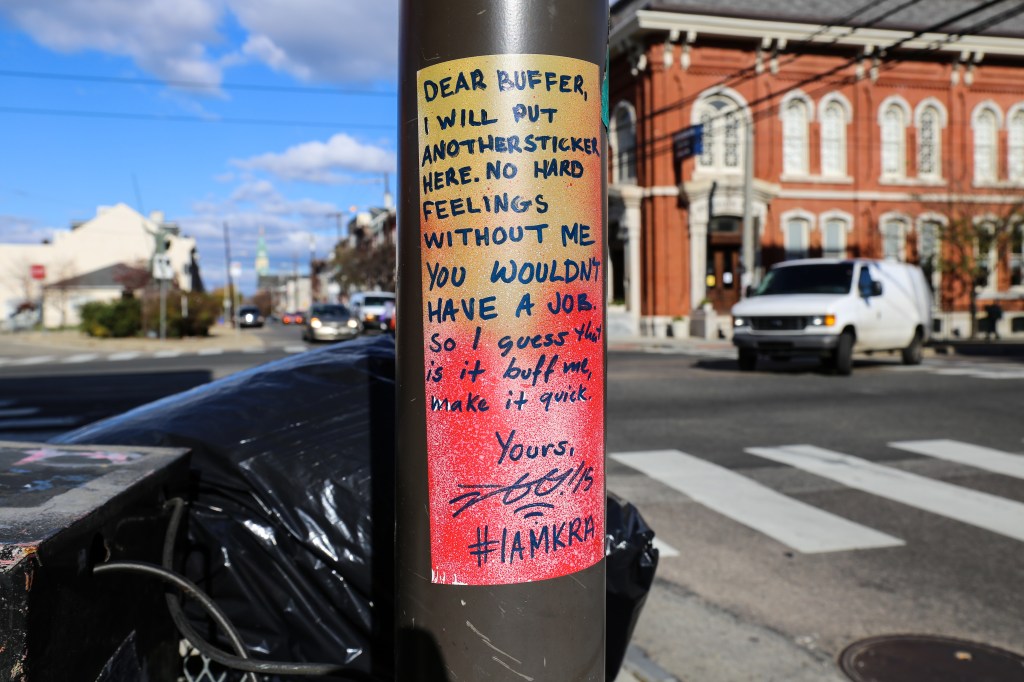 DEAR BUFFER,
I WILL PUT
ANOTHERSTICKER
HERE. NO HARD
FEELINGS
WITHOUT ME
YOU WOULDN'T
HAVE A JOB.
So I guess that
is it buff me,
make it quick.
Yours,
#IAMKRA